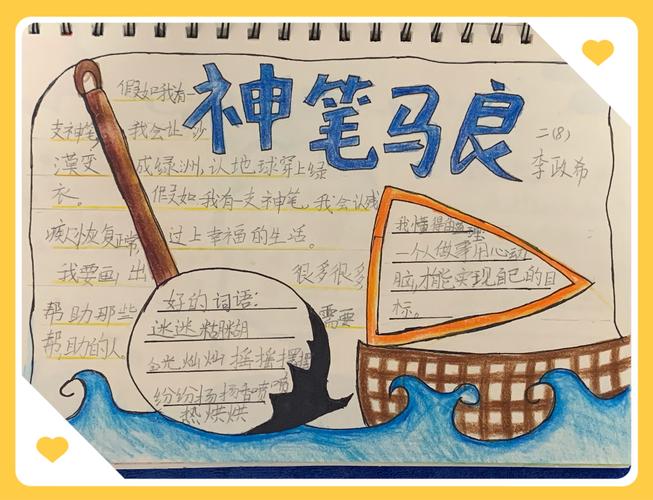 神笔马良
二(8)
李政希
假如我有一
支神笔,我会让沙
漠变成绿洲,认地球穿上绿
衣。假如我有一支神笔,我会认残
疾冫恢复正常,过上幸福的生活。
我要画出很多很多
帮助那些需要
帮助的人。
好的词语:
迷迷糊糊
金光灿灿 摇摇摆摆
纷纷扬扬香喷喷
热烘烘
我懂得
一个人做事用心动
脑,才能实现自己的目
标。